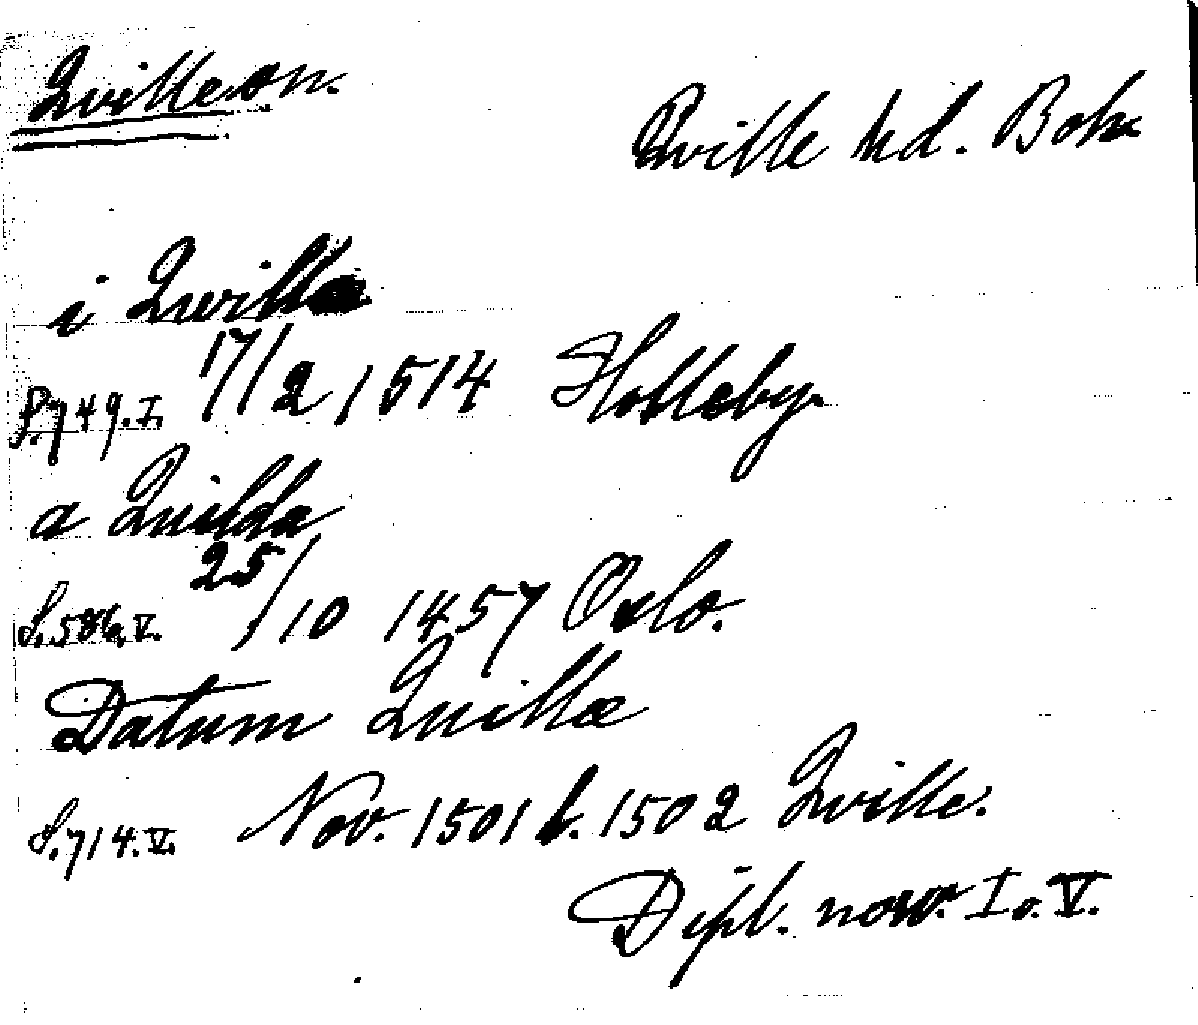 Qvilleön.
Qville hd. Boh.
i Qwilla
S. 749. I. 17/2 1514 Holleby.
a Quilda
S. 586. V. 25/10 1457 Oslo.
Datum Quillæ
S. 714. V. Nov. 1501 l. 1502 Qville.
Dipl. norv. I o. V.